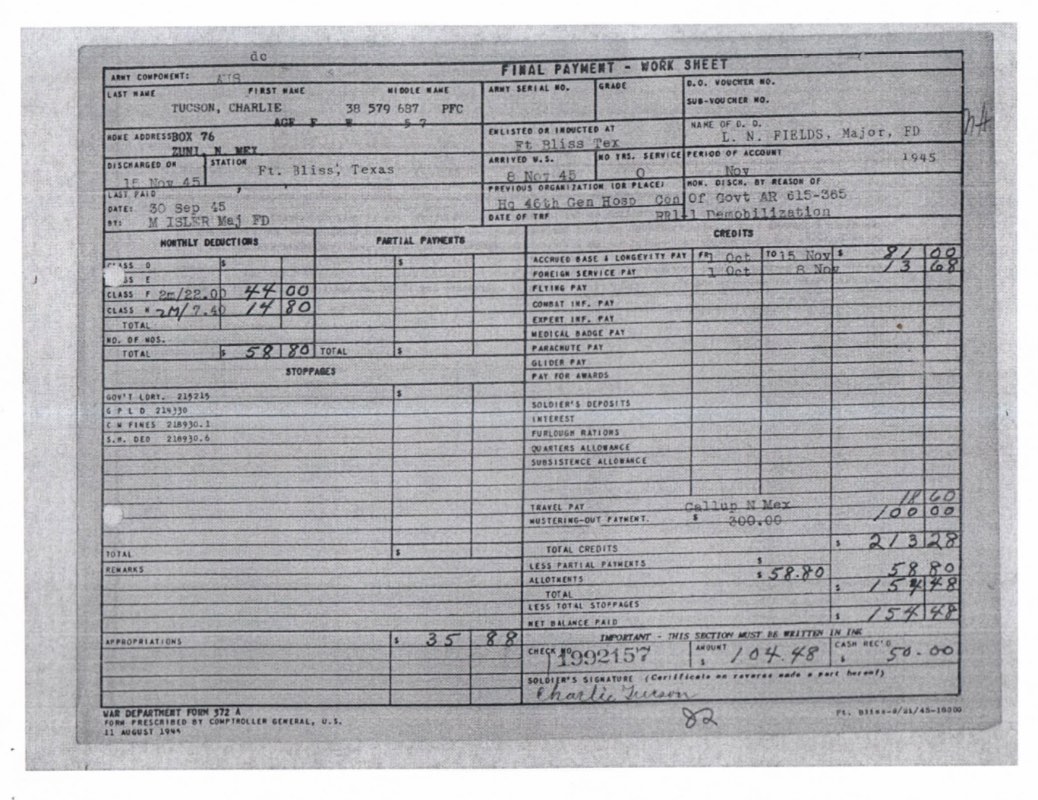 dc
FINAL PAYMENT - WORK SHEET
ARMY COMPONENT: AUS
LAST NAME FIRST NAME MIDDLE NAME ARMY SERIAL NO. GRADE D.O. VOUCHER NO.
SUB-VOUCHER NO.
TUCSON, CHARLIE 38 579 687 PFC
AGE F
HOME ADDRESS BOX 76 ENLISTED OR INDUCTED AT NAME OF D. O.
ZUNI, N. MEX Ft Bliss Tex L. N. FIELDS, Major, FD
DISCHARGED ON STATION ARRIVED U.S. NO YRS. SERVICE PERIOD OF ACCOUNT 1945
15 Nov 45 Ft. Bliss, Texas 8 Nov 45 0 Nov
LAST PAID PREVIOUS ORGANIZATION (OR PLACE) HON. DISCH. BY REASON OF
DATE: 30 Sep 45 Hq 46th Gen Hosp Con Of Govt AR 615-365
BY: M ISLER Maj FD DATE OF TRF RR1-1 Demobilization
MONTHLY DEDUCTIONS PARTIAL PAYMENTS CREDITS
CLASS D $ $ ACCRUED BASE & LONGEVITY PAY FR 1 Oct TO 15 Nov $ 81 00
CLASS E FOREIGN SERVICE PAY 1 Oct 8 Nov 13 68
CLASS F 2m/22.00 44 00 FLYING PAY
CLASS N 2M/7.40 14 80 COMBAT INF. PAY
TOTAL EXPERT INF. PAY
NO. OF MOS. MEDICAL BADGE PAY
TOTAL $ 58 80 TOTAL $ PARACHUTE PAY
GLIDER PAY
STOPPAGES PAY FOR AWARDS
GOV'T LDRY. 215215 $
G P L D 214330 SOLDIER'S DEPOSITS
C M FINES 218930.1 INTEREST
S.H. DED 218930.6 FURLOUGH RATIONS
QUARTERS ALLOWANCE
SUBSISTENCE ALLOWANCE
TRAVEL PAY Gallup N Mex 18 60
MUSTERING-OUT PAYMENT. $ 300.00 100 00
TOTAL $ TOTAL CREDITS $ 213 28
REMARKS LESS PARTIAL PAYMENTS $
ALLOTMENTS $ 58.80 58 80
TOTAL $ 154 48
LESS TOTAL STOPPAGES
NET BALANCE PAID $ 154 48
APPROPRIATIONS $ 35 88 IMPORTANT - THIS SECTION MUST BE WRITTEN IN INK
CHECK NO. 1992157 AMOUNT $ 104.48 CASH REC'D $ 50.00
SOLDIER'S SIGNATURE (Certificate on reverse made a part hereof)
Charlie Tucson
WAR DEPARTMENT FORM 372 A
FORM PRESCRIBED BY COMPTROLLER GENERAL, U.S.
11 AUGUST 1944
82
Ft. Bliss-8/21/45-15000